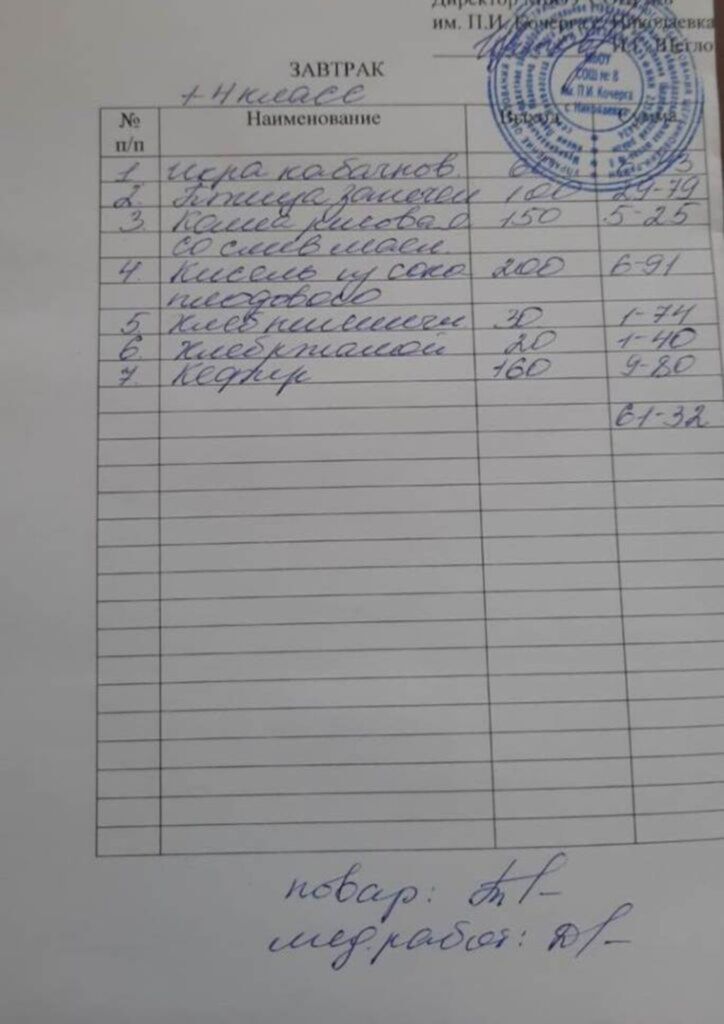 Директор МБОУ СОШ №8
им. П.И. Кочерга с. Николаевка
ЗАВТРАК
1-4 класс
№ п/п Наименование Выход Сумма
1. Икра кабачков. 60
2. Птица запечен 100 29-79
3. Кашиа рисовая 150 5-25
со слив масл.
4. Кисель из сока 200 6-91
плодового
5. Хлеб пшеничн 30 1-74
6. Хлеб ржаной 20 1-40
7. Кефир 160 9-80
61-32
повар:
мед.работ:
МБОУ
СОШ № 8
им. П.И. Кочерга
с. Николаевка